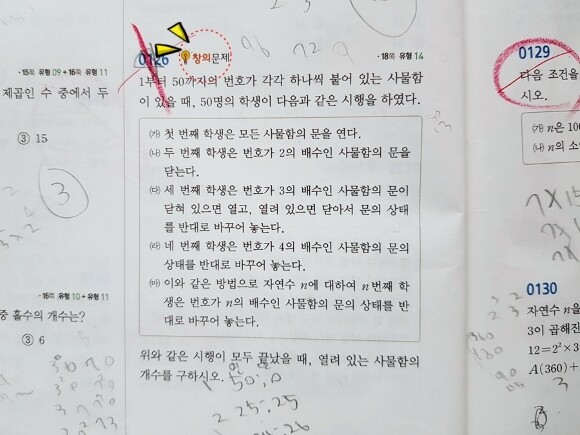 ·15쪽 유형 09+16쪽 유형 11
제곱인 수 중에서 두
③ 15
3
·16쪽 유형 10+유형 11
중 홀수의 개수는?
③ 6
0126 창의문제 ·18쪽 유형 14
1부터 50까지의 번호가 각각 하나씩 붙어 있는 사물함
이 있을 때, 50명의 학생이 다음과 같은 시행을 하였다.
㈎ 첫 번째 학생은 모든 사물함의 문을 연다.
㈏ 두 번째 학생은 번호가 2의 배수인 사물함의 문을
닫는다.
㈐ 세 번째 학생은 번호가 3의 배수인 사물함의 문이
닫혀 있으면 열고, 열려 있으면 닫아서 문의 상태
를 반대로 바꾸어 놓는다.
㈑ 네 번째 학생은 번호가 4의 배수인 사물함의 문의
상태를 반대로 바꾸어 놓는다.
㈒ 이와 같은 방법으로 자연수 n에 대하여 n번째 학
생은 번호가 n의 배수인 사물함의 문의 상태를 반
대로 바꾸어 놓는다.
위와 같은 시행이 모두 끝났을 때, 열려 있는 사물함의
개수를 구하시오.
50:0
2 25:25
0129
다음 조건을
시오.
㈎ n은 100
㈏ n의 소
7X15
0130
자연수 n을
3이 곱해진
12=2²×3
A(360)+